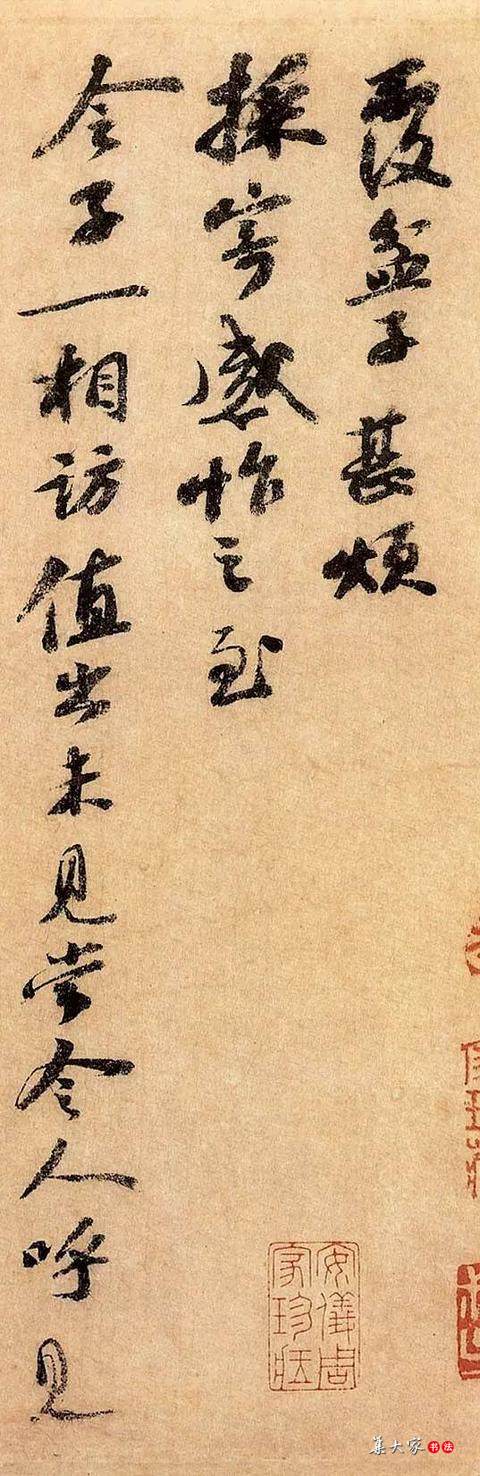 覆盆子甚煩
採寄感怍之至
令子一相訪值出未見當令人呼見
安儀周
家珍藏
集大家书法